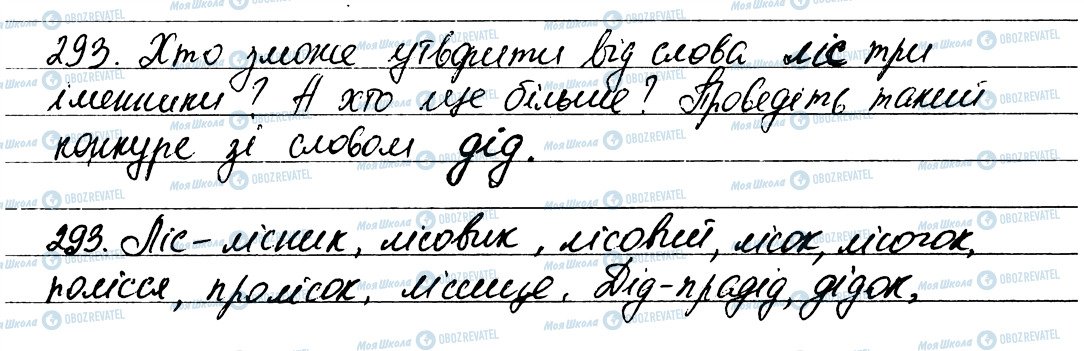 293. Хто зможе утворити від слова ліс три
іменники? А хто ще більше? Проведіть такий
конкурс зі словом дід.
293. Ліс – лісник, лісовик, лісовий, лісок, лісочок,
полісся, пролісок, лісище. Дід – прадід, дідок,